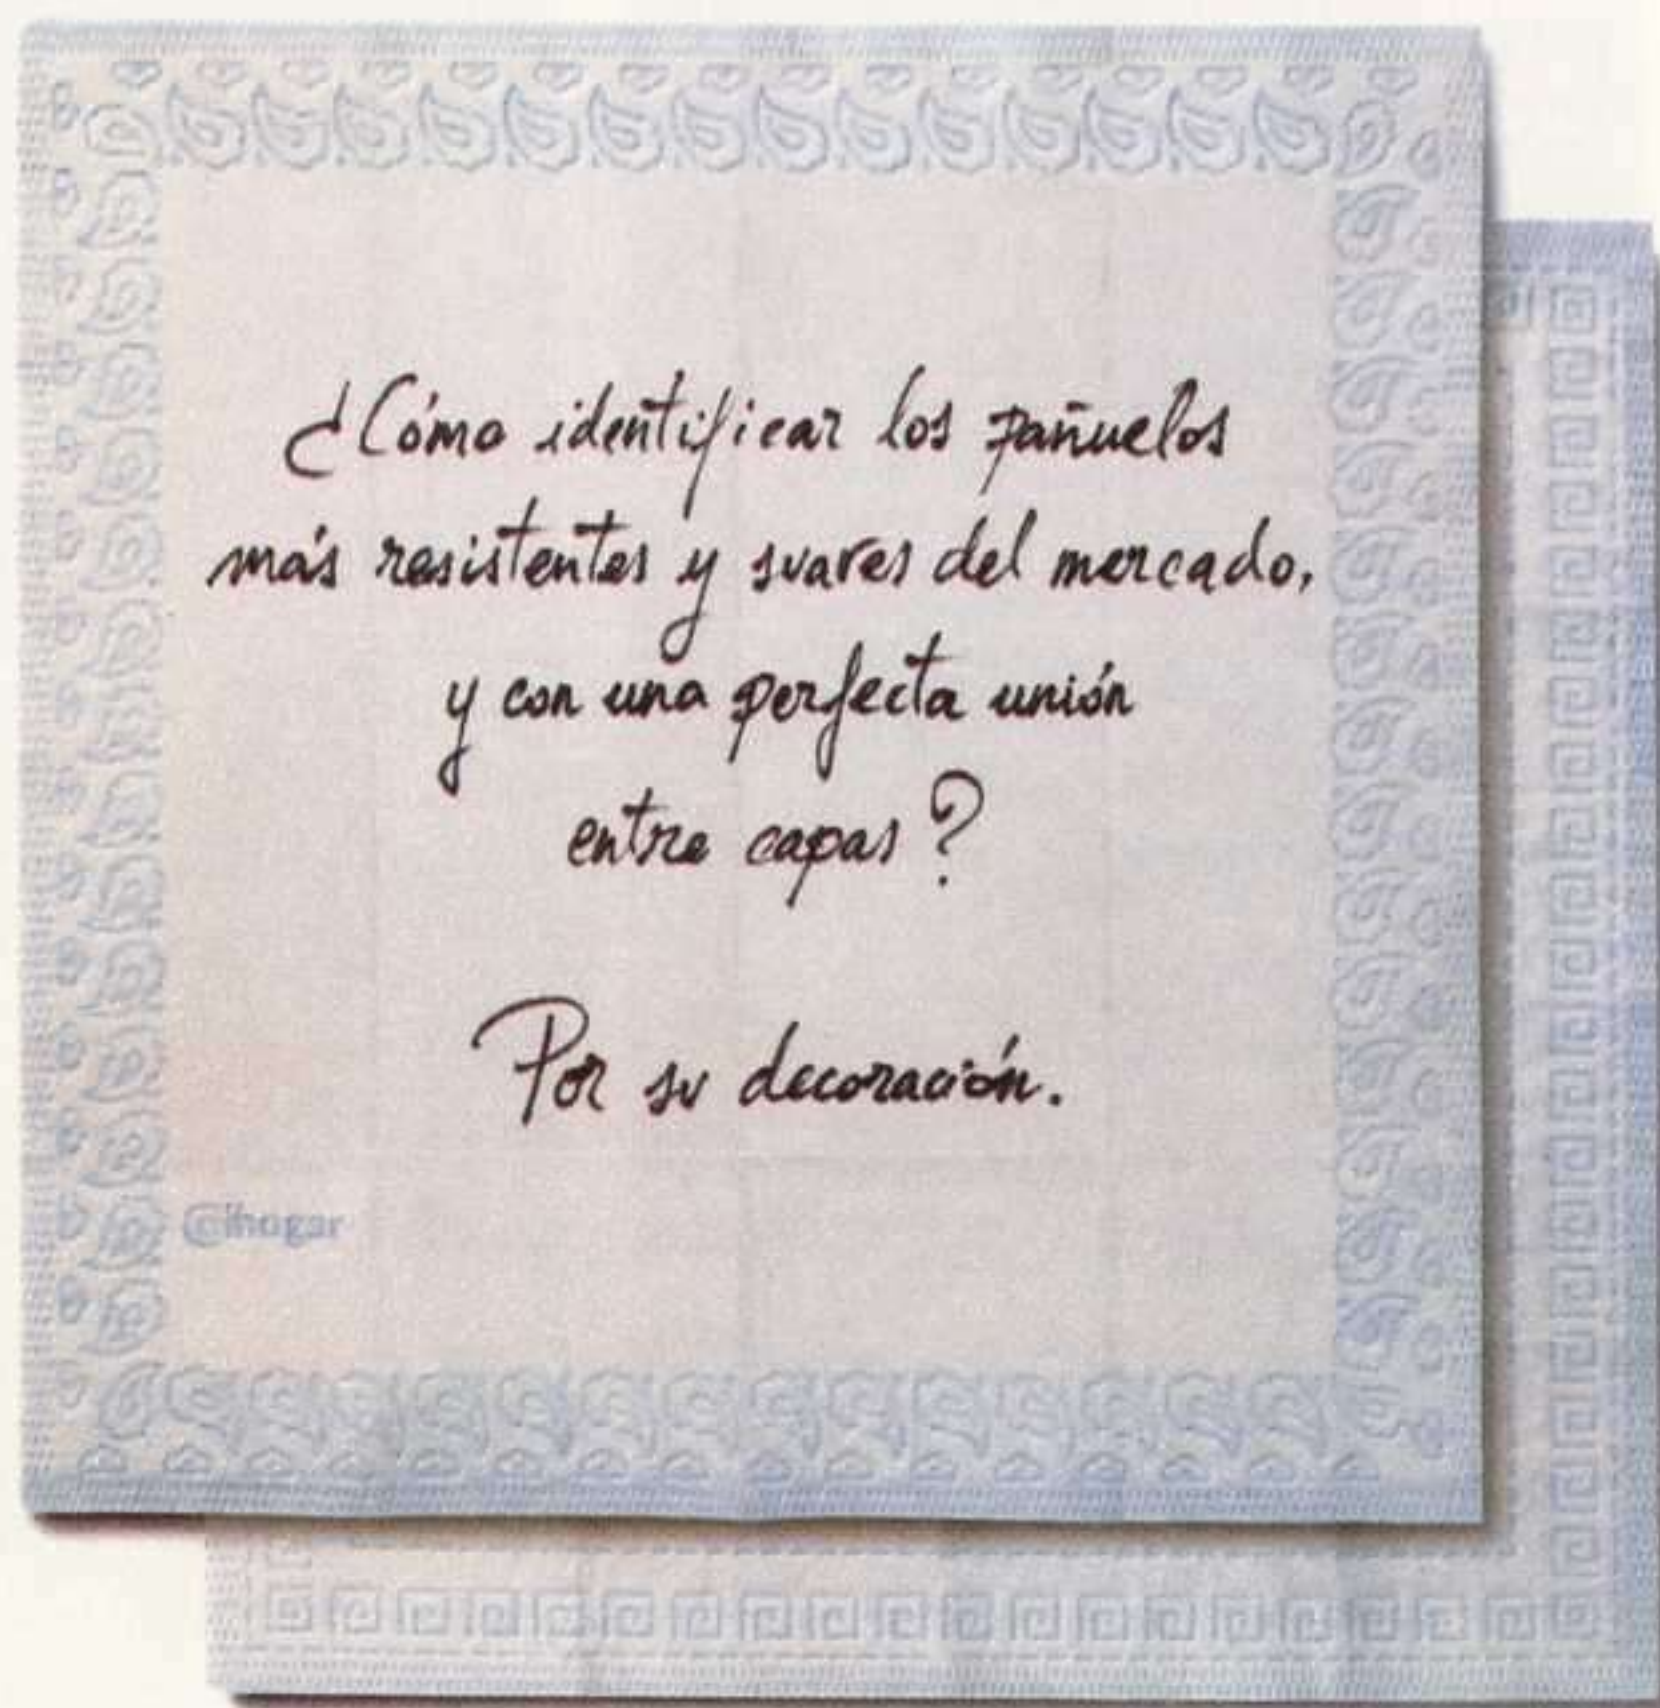 ¿Cómo identificar los pañuelos
más resistentes y suaves del mercado,
y con una perfecta unión
entre capas?
Por su decoración.
@ihogar